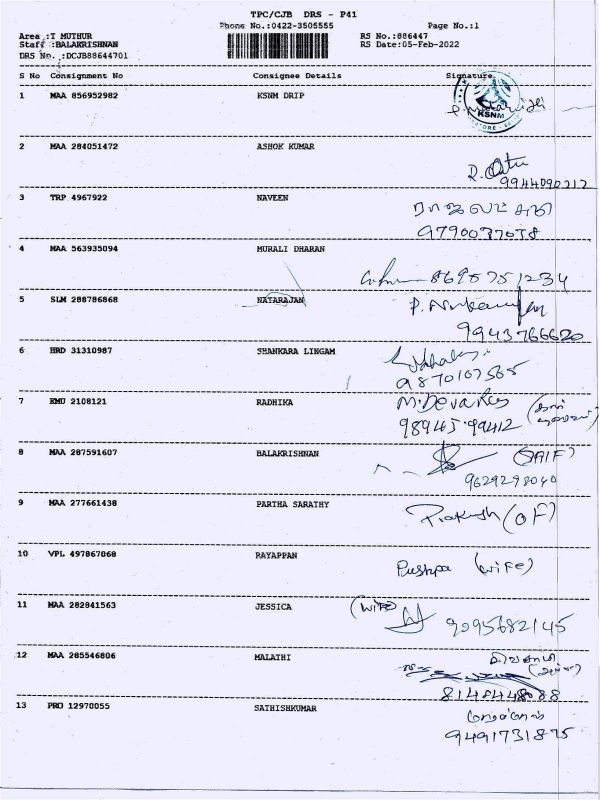 TPC/CJB DRS - P41
Phone No.:0422-3505555 Page No.:1
Area :T MUTHUR RS No.:886447
Staff :BALAKRISHNAN RS Date:05-Feb-2022
DRS No. :DCJB88644701
S No Consignment No Consignee Details Signature
1 MAA 856952982 KSNM DRIP
KSNM
2 MAA 284051472 ASHOK KUMAR
9944090212
3 TRP 4967922 NAVEEN
9790037038
4 MAA 563935094 MURALI DHARAN
8695751234
5 SLM 288786868 NATARAJAN
9943766620
6 HRD 31310987 SHANKARA LINGAM
9870167565
7 KMU 2108121 RADHIKA
98945 99412
8 MAA 287591607 BALAKRISHNAN
9629298040
9 MAA 277661438 PARTHA SARATHY
Prakash (OF)
10 VPL 497867068 RAYAPPAN
Pushpa (wife)
11 MAA 282841563 JESSICA (wife)
9095682145
12 MAA 285546806 MALATHI
8148448088
13 PRO 12970055 SATHISHKUMAR
9491731875